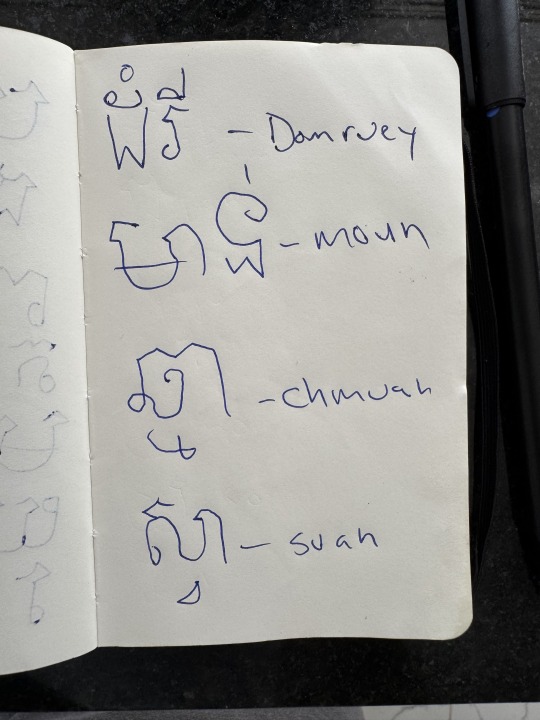 ដំរី - Damruey
មាន់ - moun
ឆ្មា - chmuah
ស្វា - suah